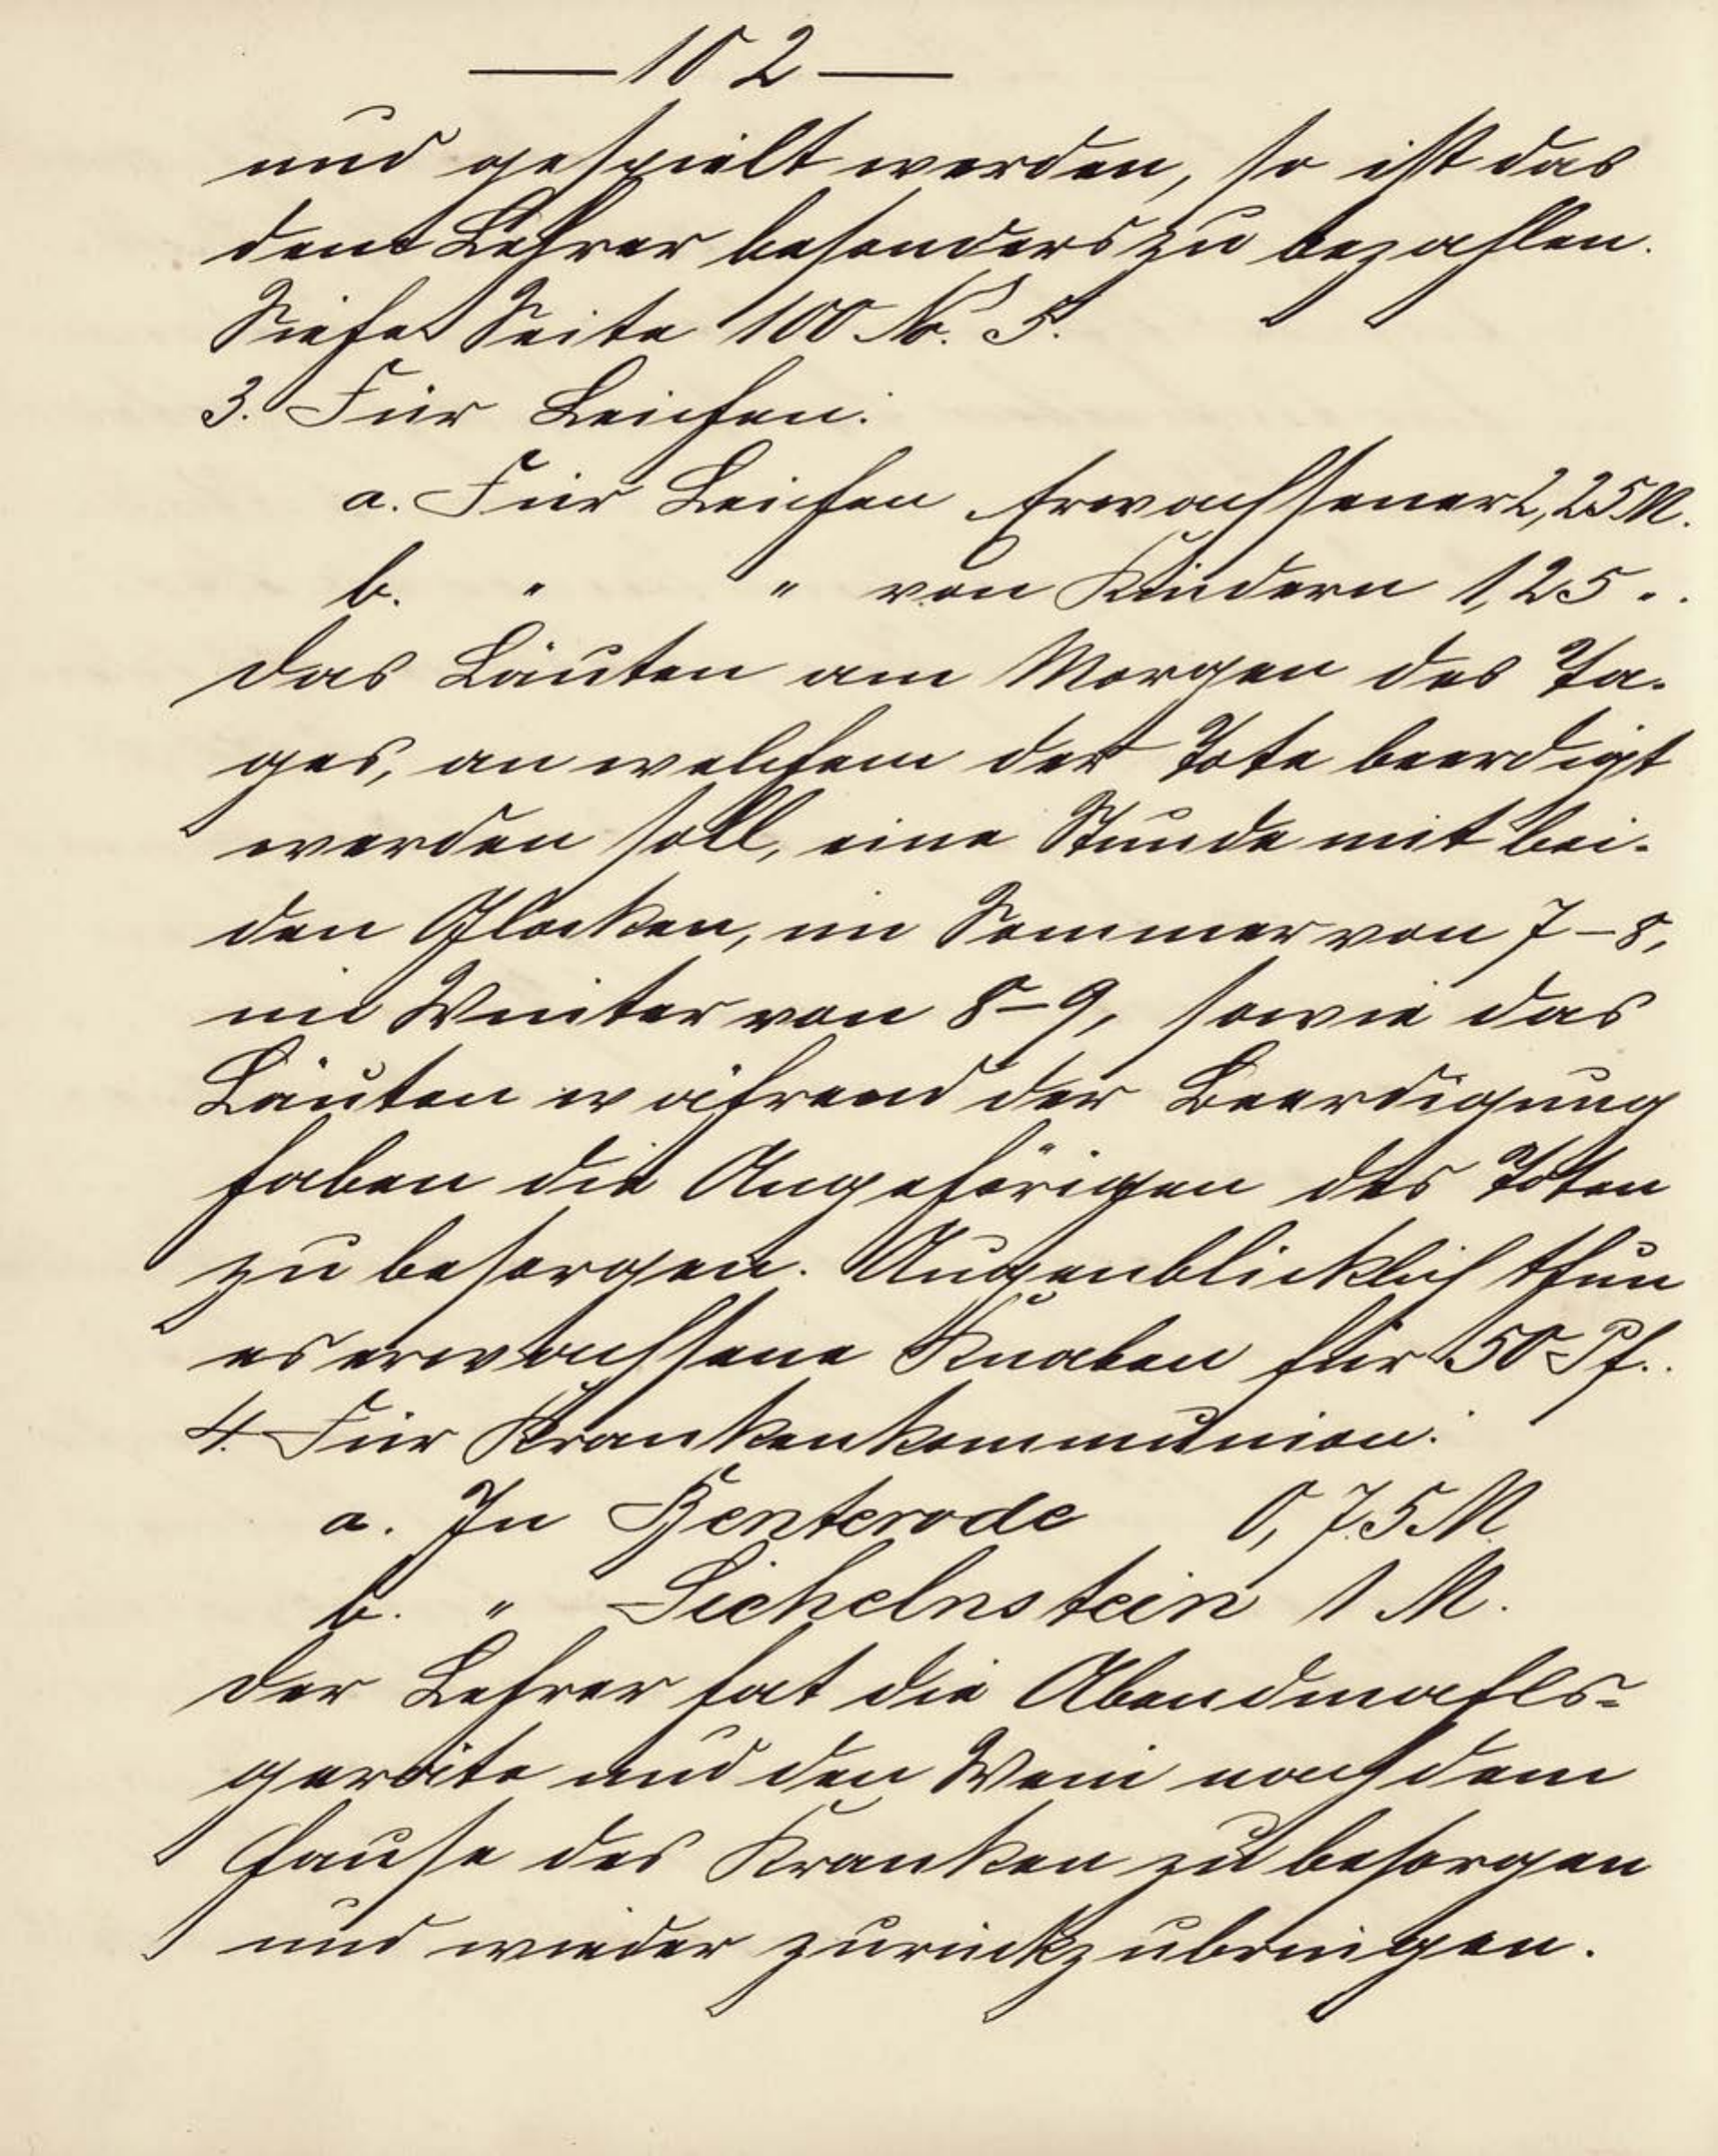 — 102 —
und gespielt werden, so ist das
dem Lehrer besonders zu bezahlen.
Siehe Seite 100 No. 5.
3. Für Leichen:
a. Für Leichen Erwachsener 2,25 M.
b. " " von Kindern 1,25 "
Das Läuten am Morgen des Ta-
ges, an welchem der Tote beerdigt
werden soll, eine Stunde mit bei-
den Glocken, im Sommer von 7–8,
im Winter von 8–9, sowie das
Läuten während der Beerdigung
haben die Angehörigen des Toten
zu besorgen. Augenblicklich thun
es erwachsene Knaben für 50 Pf.
4. Für Krankenkommunion:
a. In Benterode 0,75 M.
b. " Sichelnstein 1 M.
Der Lehrer hat die Abendmahls-
geräte und den Wein nach dem
Hause des Kranken zu besorgen
und wieder zurückzubringen.